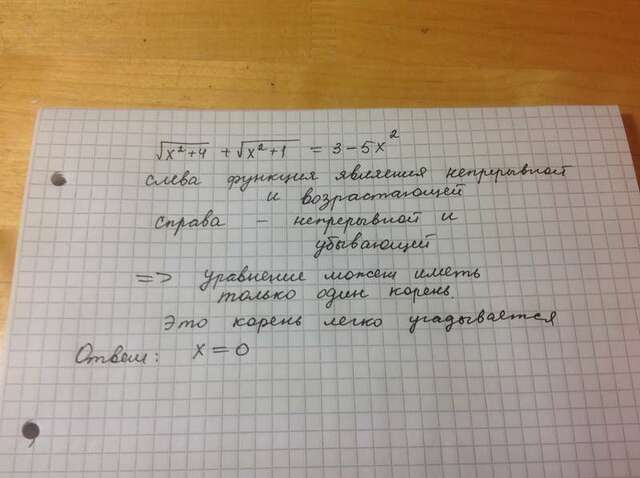 √x²+4 + √x²+1 = 3-5x²
слева функция является непрерывной
и возрастающей
справа - непрерывной и
убывающей
=> уравнение может иметь
только один корень.
Это корень легко угадывается
Ответ: x = 0